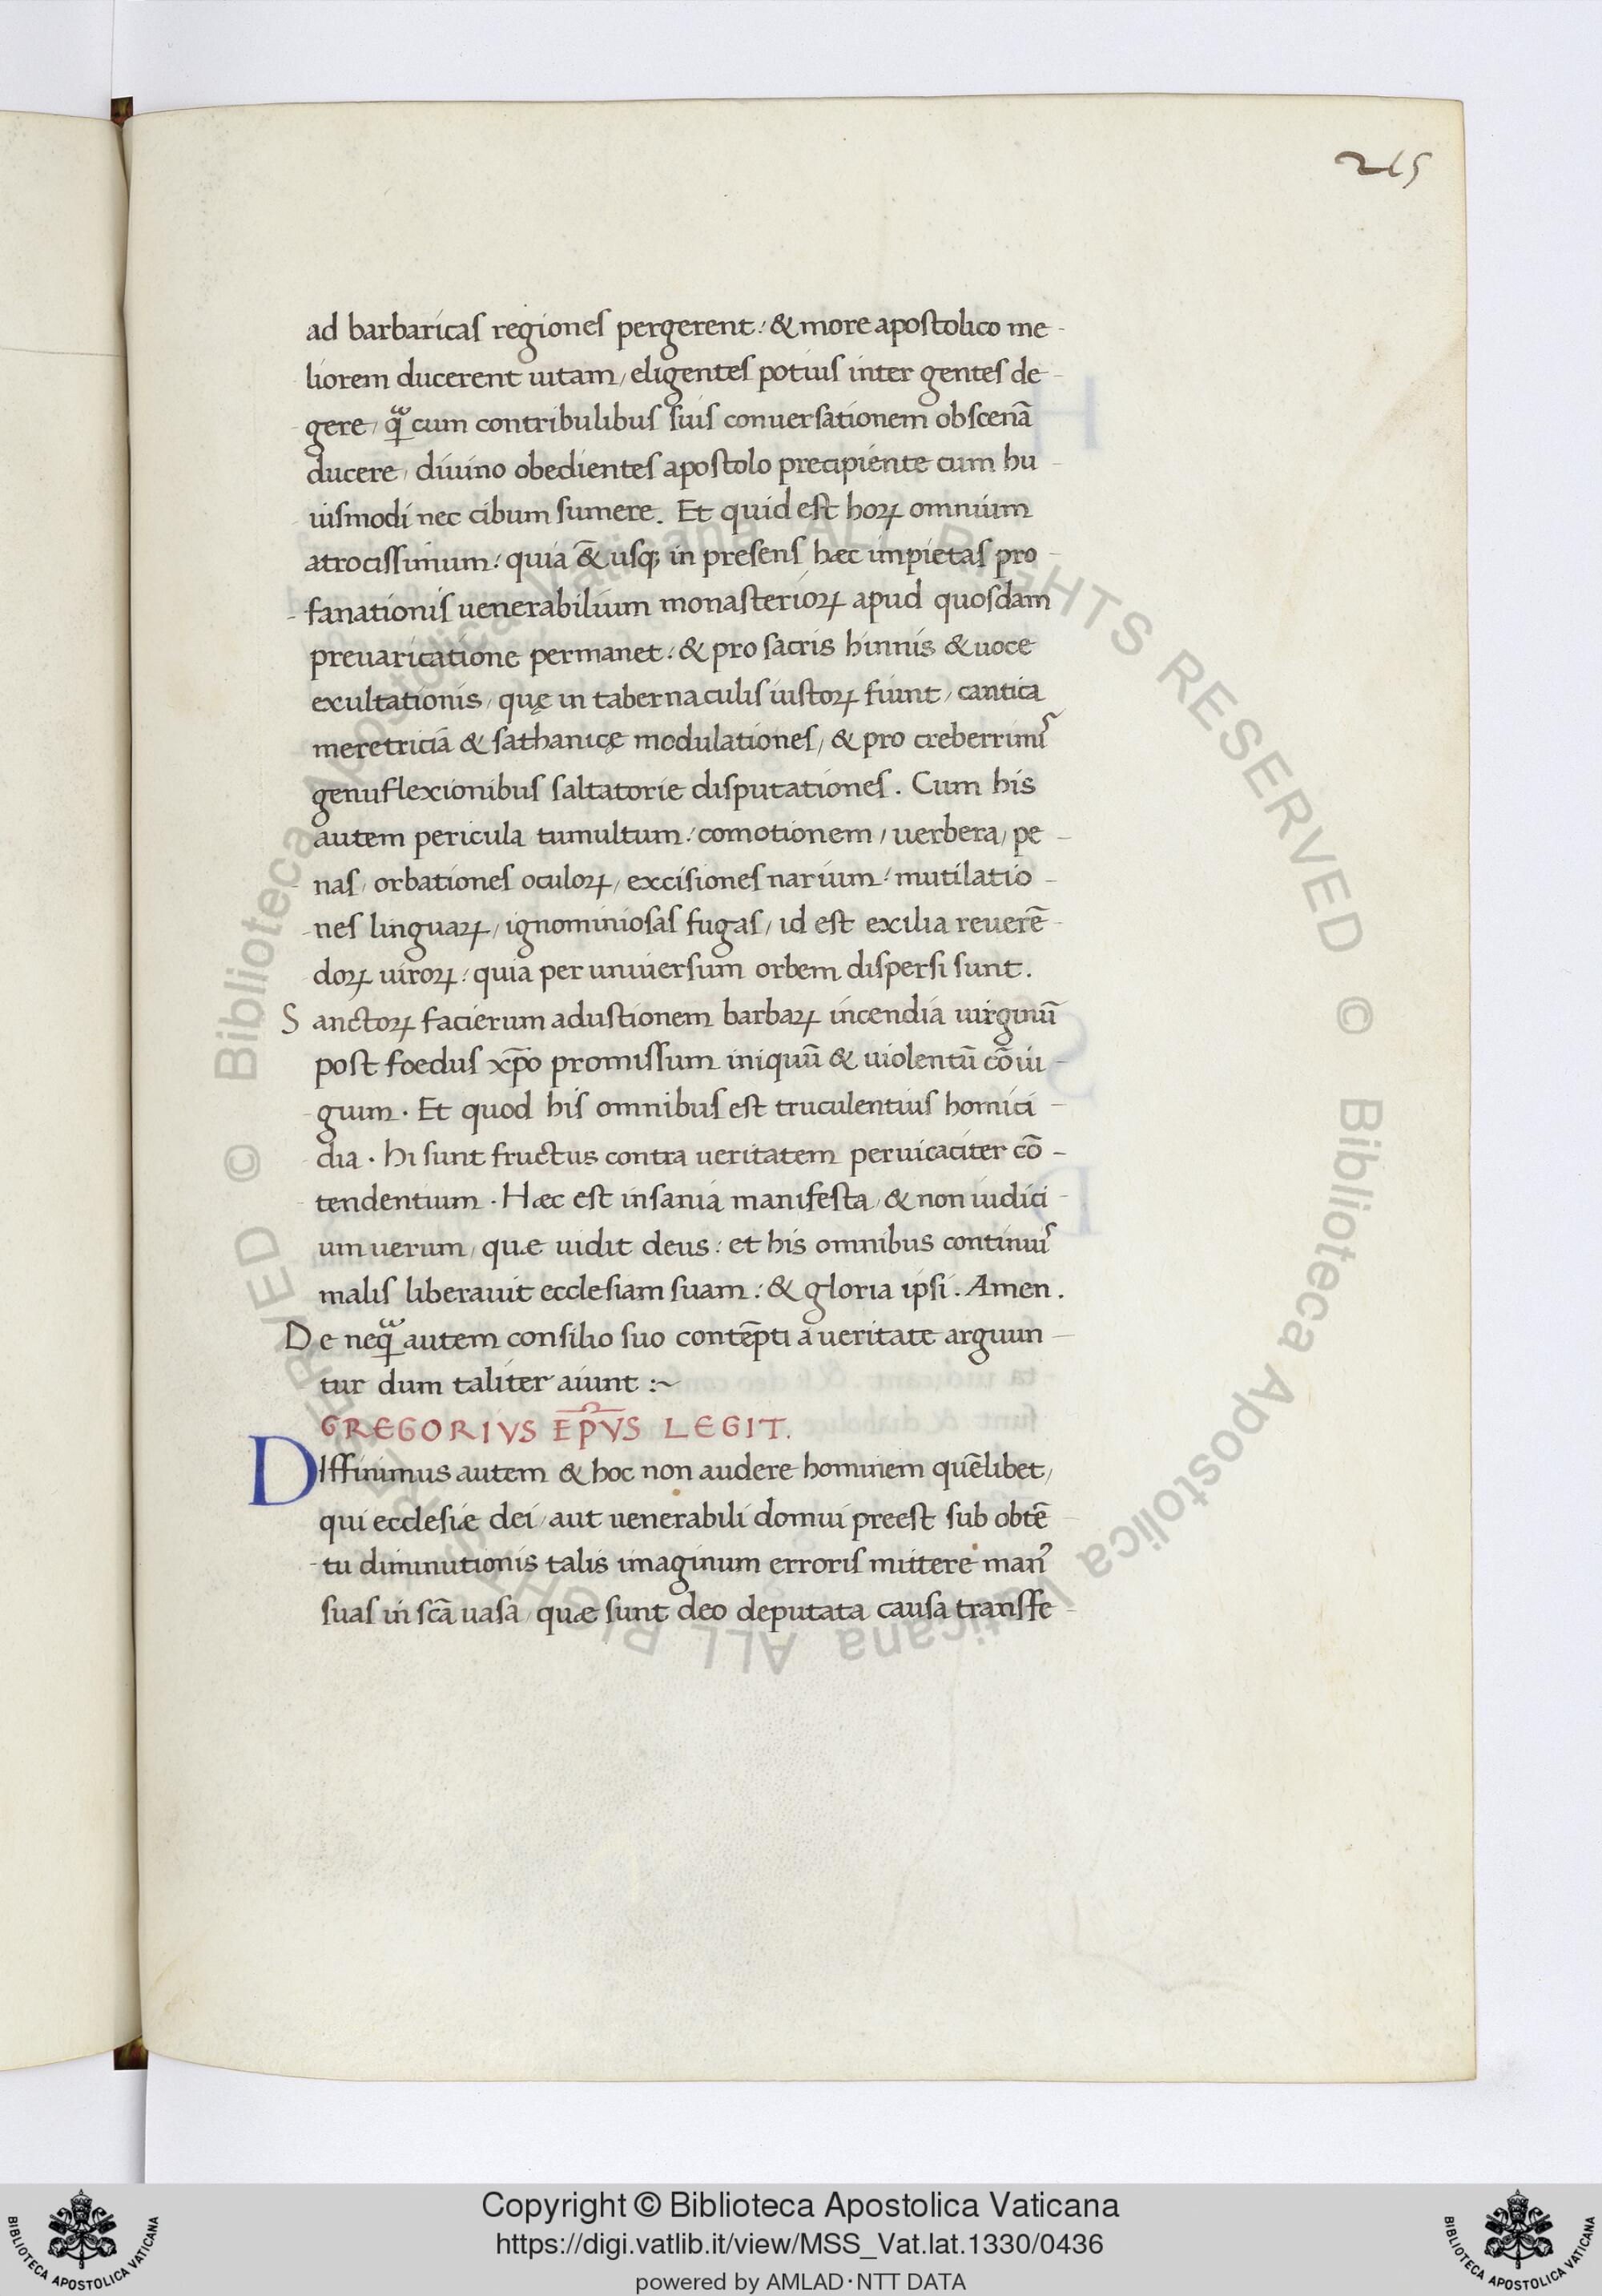 215
ad barbaricas regiones pergerent: & more apostolico me-
liorem ducerent uitam, eligentes potius inter gentes de-
gere, qͣ cum contribulibus suis conuersationem obscenā
ducere, diuino obedientes apostolo precipiente cum hu-
uismodi nec cibum sumere. Et quid est hoꝝ omnium
atrocissimum: quia &̄ usq; in presens hæc impietas pro-
fanationis uenerabilium monasterioꝝ apud quosdam
preuaricatione permanet: & pro sacris hinnis & uoce
exultationis, quę in tabernaculis iustoꝝ fiunt, cantica
meretriciā & sathanicę modulationes, & pro creberrimis
genuflexionibus saltatorie disputationes. Cum his
autem pericula tumultum: comotionem, uerbera, pe-
nas, orbationes oculoꝝ, excisiones narium: mutilatio-
nes linguaꝝ, ignominiosas fugas, id est exilia reuerē-
doꝝ uiroꝝ: quia per uniuersum orbem dispersi sunt.
Sanctoꝝ facierum adustionem barbaꝝ incendia uirginū
post foedus xp̄o promissum iniquū & uiolentū cōiu-
gium. Et quod his omnibus est truculentius homici-
dia. hi sunt fructus contra ueritatem peruicaciter cō-
tendentium. Hæc est insania manifesta, & non iudici-
um uerum, quæ uidit deus: et his omnibus continuis
malis liberauit ecclesiam suam: & gloria ipsi. Amen.
De neqͣ autem consilio suo contēpti a ueritate arguun-
tur dum taliter aiunt :~
GREGORIVS EP̄VS LEGIT.
DIffinimus autem & hoc non audere hominem quēlibet,
qui ecclesiæ dei, aut uenerabili domui preest sub obtē-
tu diminutionis talis imaginum erroris mittere man᾽
suas in scā uasa, quæ sunt deo deputata causa transfe-
© Biblioteca Apostolica Vaticana ALL RIGHTS RESERVED © Biblioteca Apostolica Vaticana ALL RIGHTS RESERVED
Copyright © Biblioteca Apostolica Vaticana
https://digi.vatlib.it/view/MSS_Vat.lat.1330/0436
powered by AMLAD·NTT DATA
BIBLIOTECA APOSTOLICA VATICANA
BIBLIOTECA APOSTOLICA VATICANA